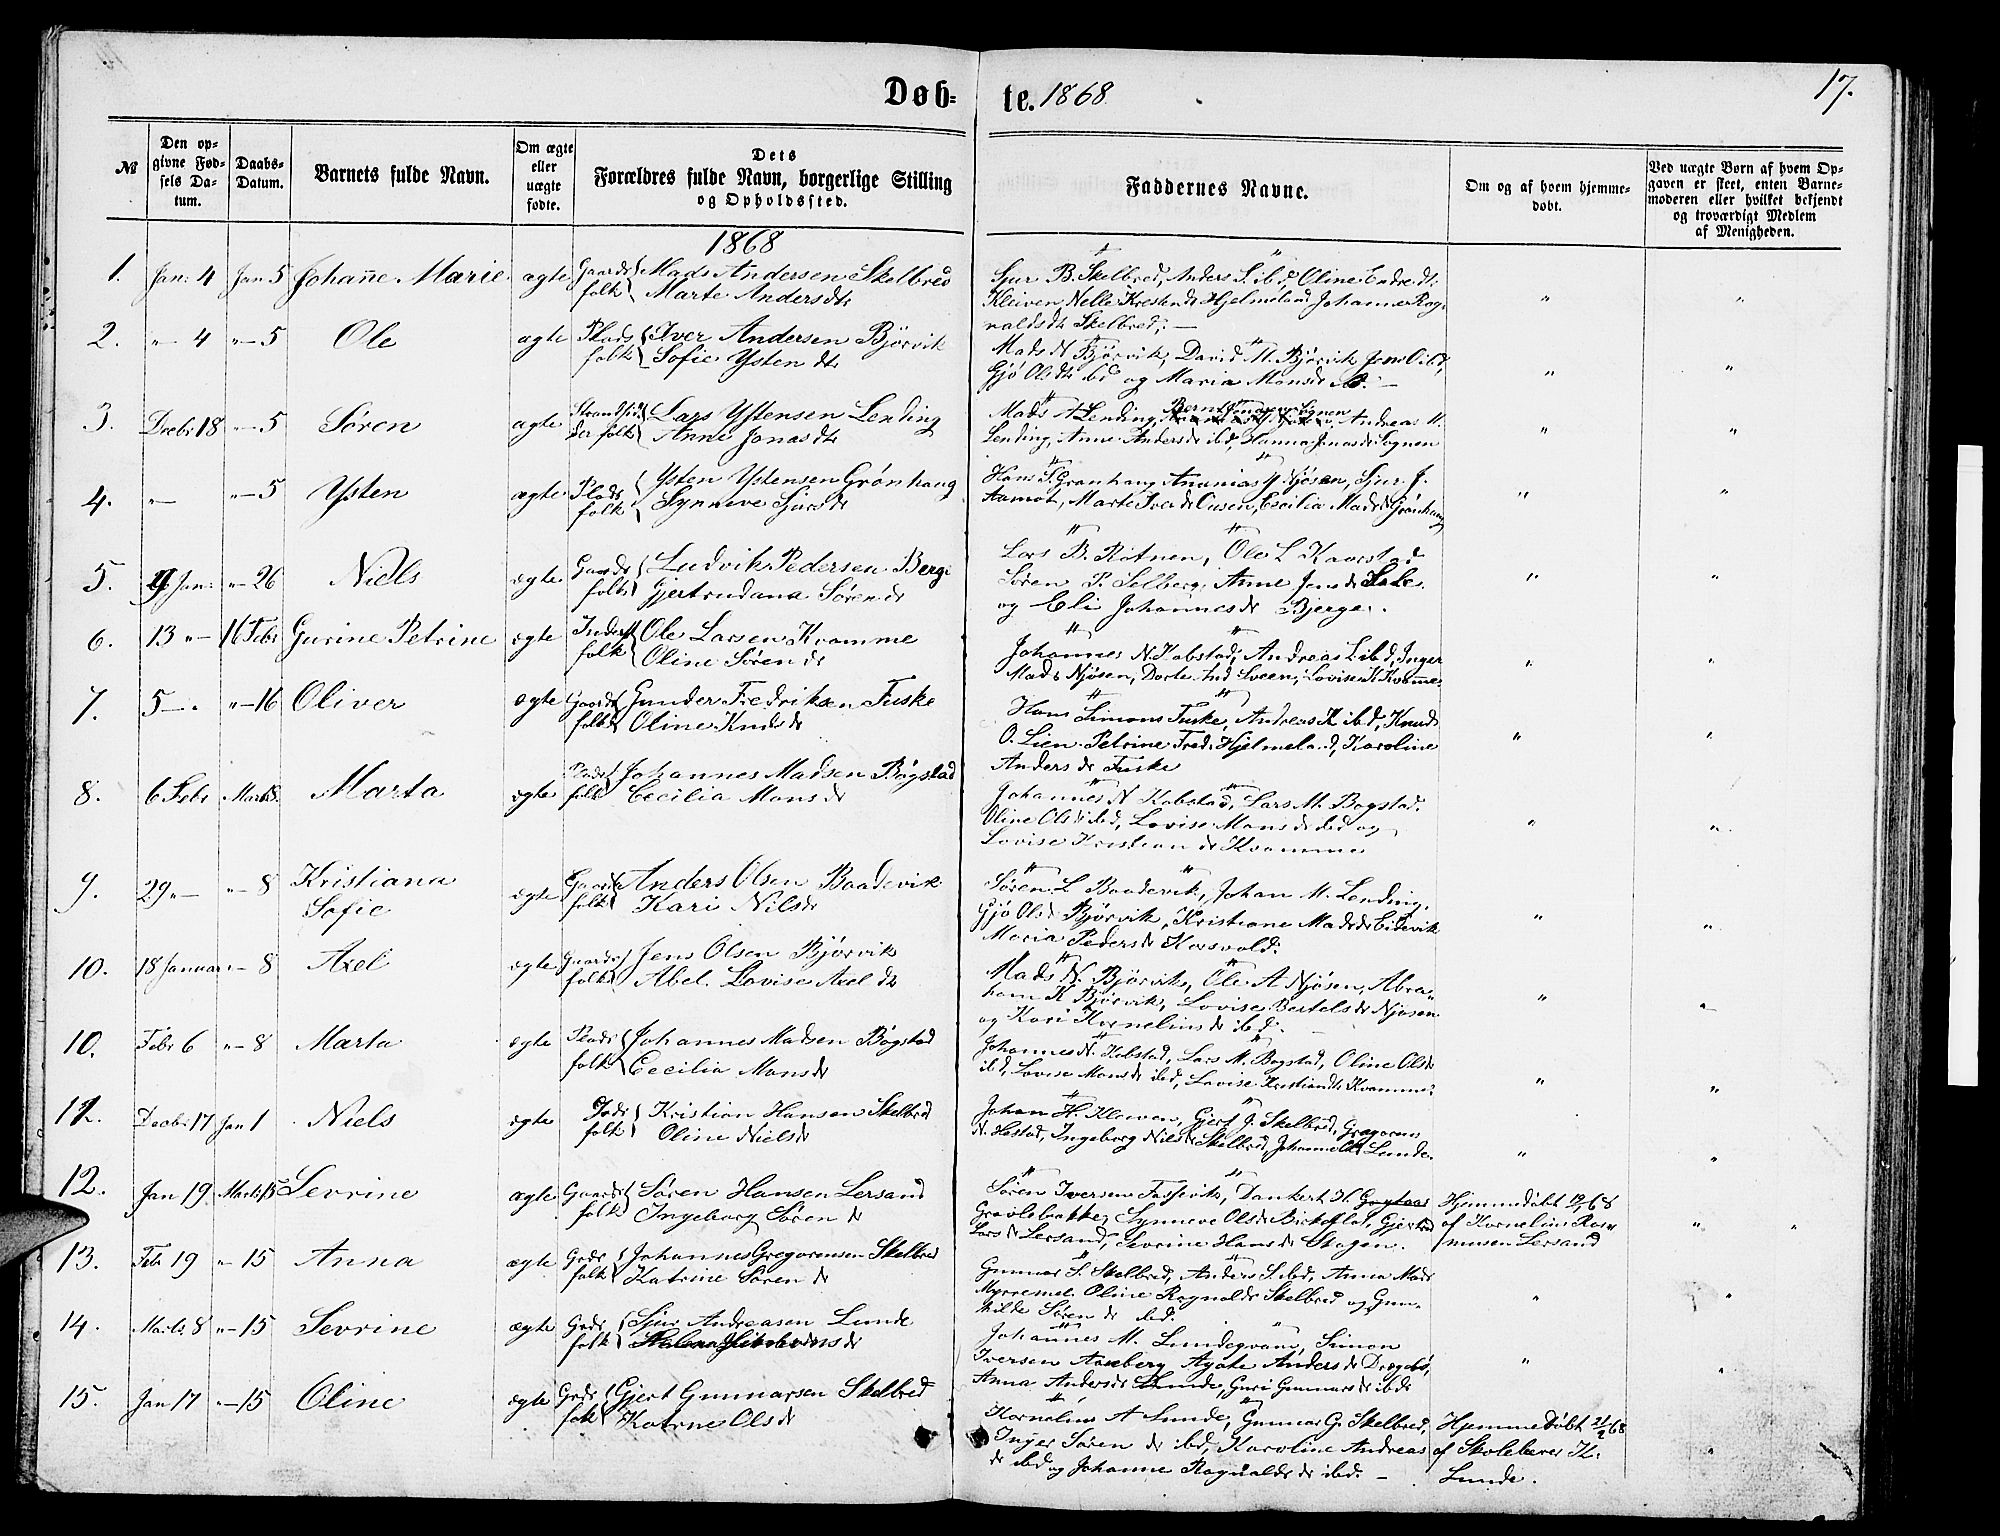 Døb= te. 1868 17.
№
Den op-
givne Fød-
sels Da-
tum.
Daabs-
Datum.
Barnets fulde Navn.
Om ægte
eller
uægte
fødte.
Dets
Forældres fulde Navn, borgerlige Stilling
og Opholdssted.
Faddernes Navne.
Om og af hvem hjemme-
døbt.
Ved uægte Børn af hvem Op-
gaven er skeet, enten Barne-
moderen eller hvilket bekjendt
og troværdigt Medlem
af Menigheden.
1868
1. Jan: 4 Jan 5 Johanne Marie ægte Gaards folk Mads Andersen Skelbred
Marte Andersdtr
Sjur B. Skelbred, Anders S. ibd, Oline Endredtr
Kleiven, Nelle Krestendtr Hjelmeland Johanne Rag-
naldsdtr Skelbred. " "
2. " 4 " 5 Ole ægte Plads folk Iver Andersen Bjørvik
Sofie Ystendtr
Mads N Bjørvik, David M. Bjørvik Jens O ibd,
Gjø Olsdtr ibd og Maria Monsdtr ibd. " "
3. Decbr 18 " 5 Søren ægte Lars Ystensen Lending
Anne Jonasdtr
Mads A Lending, Andreas M.
Lending, Anne Andersdtr ibd, Hanna Jonasdtr Sognen " "
4. " " 5 Ysten ægte Plads folk Ysten Ystensen Grønhaug
Synneve Sjursdtr
Hans S. Grønhaug Ananias Y. Njøsen, Sjur J.
Aamot, Marte Iversdtr Ousen, Cecilia Madsdtr Grønhaug " "
5. 9 Jan: " 26 Niels ægte Gaards folk Ludvik Pedersen Berge
Gjertrudana Sørendtr
Lars B. Rotnen, Ole L Kaarstad
Søren P. Solberg, Anne Jensdtr Sale
og Eli Johannesdtr Bjerge. " "
6. 13 " 16 Febr Gurine Petrine ægte Inderst folk Ole Larsen Kvamme
Oline Sørendtr
Johannes N. Kobstad, Andreas L ibd, Inger
Mads Njøsen, Dorte And Sveen, Lovise K Kvamme " "
7. 5 " 16 Oliver ægte Gaards folk Gunder Fredriksen Fuske
Oline Knudsdtr
Hans Simons Fuske, Andreas K ibd, Knud
O. Lien Petrine Fred. Hjelmeland, Karoline
Andersdtr Fuske " "
8. 6 Febr Marts 8 Marta ægte Plads folk Johannes Madsen Bøgstad
Cecilia Monsdtr
Johannes N Kobstad, Lars M. Bogstad,
Oline Olsdtr ibd, Lovise Monsdtr ibd og
Lovise Kristiandtr Kvamme " "
9. 29 " " 8 Kristiana
Sofie ægte Gaards folk Anders Olsen Baadevik
Kari Nilsdtr
Søren L Baadevik, Johan M. Lending,
Gjø Olsdtr Bjørvik, Kristiane Madsdtr Eidevik
Maria Pedersdtr Korsvold. " "
10. 18 Januar " 8 Axel ægte Gaards folk Jens Olsen Bjørvik
Abel. Lovise Axeldtr
Mads N. Bjørvik, Ole A Njøsen, Abra-
ham K Bjørvik, Lovise Bertelsdtr Njøsen
og Kari Korneliusdtr ibd. " "
10. Febr 6 " 8 Marta ægte Plads folk Johannes Madsen Bøgstad
Cecilia Monsdtr
Johannes N. Kobstad, Lars M. Bogstad, Oline Olsdtr
ibd, Lovise Monsdtr ibd, Lovise Kristiandtr Kvamme. " "
11. Decbr 17 Jan 1 Niels ægte folk Kristian Hansen Skelbred
Oline Nielsdtr
Johan H. Kleiven, Gjert J. Skelbred, Gregorius
N. Hestad, Ingeborg Nilsdtr Skelbred, Johanne Lunde. " "
12. Jan 19. Marts 15 Sevrine ægte Gaards folk Søren Hansen Lersand
Ingeborg Sørendtr
Søren Iversen Fossevik, Dankert H.
Gravlebakke, Synneve Olsdtr Birkeflot, Gjertrud
Larsdtr Lersand, Sevrine Hansdtr Skogen.
Hjemmedøbt 19/1 68
af Kornelius Ras-
musen Lersand " "
13. Febr 19 " 15 Anna ægte Grds folk Johannes Gregoriussen Skelbred
Katrine Sørendtr
Gunnar S. Skelbred, Anders S. ibd, Anna Mads
Myrremel. Oline Ragnaldsdtr Skelbred og Gun-
hilde Sørendtr ibd. " "
14. Marts 8 " 15 Sevrine ægte Grds folk Sjur Andreasen Lunde
Johannes M. Lundegrann, Simon
Iversen Aaseberg Agate Andersdtr Dregebø,
Anna Andersdtr Lunde, Guri Gunnarsdtr ibd " "
15. Jan 17 " 15 Oline ægte Grds folk Gjert Gunnarsen Skelbred
Katrine Olsdtr
Kornelius A Lunde, Gunnar Gj. Skelbred,
Inger Sørendtr ibd, Karoline Andreas
dtr ibd og Johanne Ragnaldsdtr ibd.
Hjemmedøbt 21/2 68
af Skolelærer K.
Lunde. "